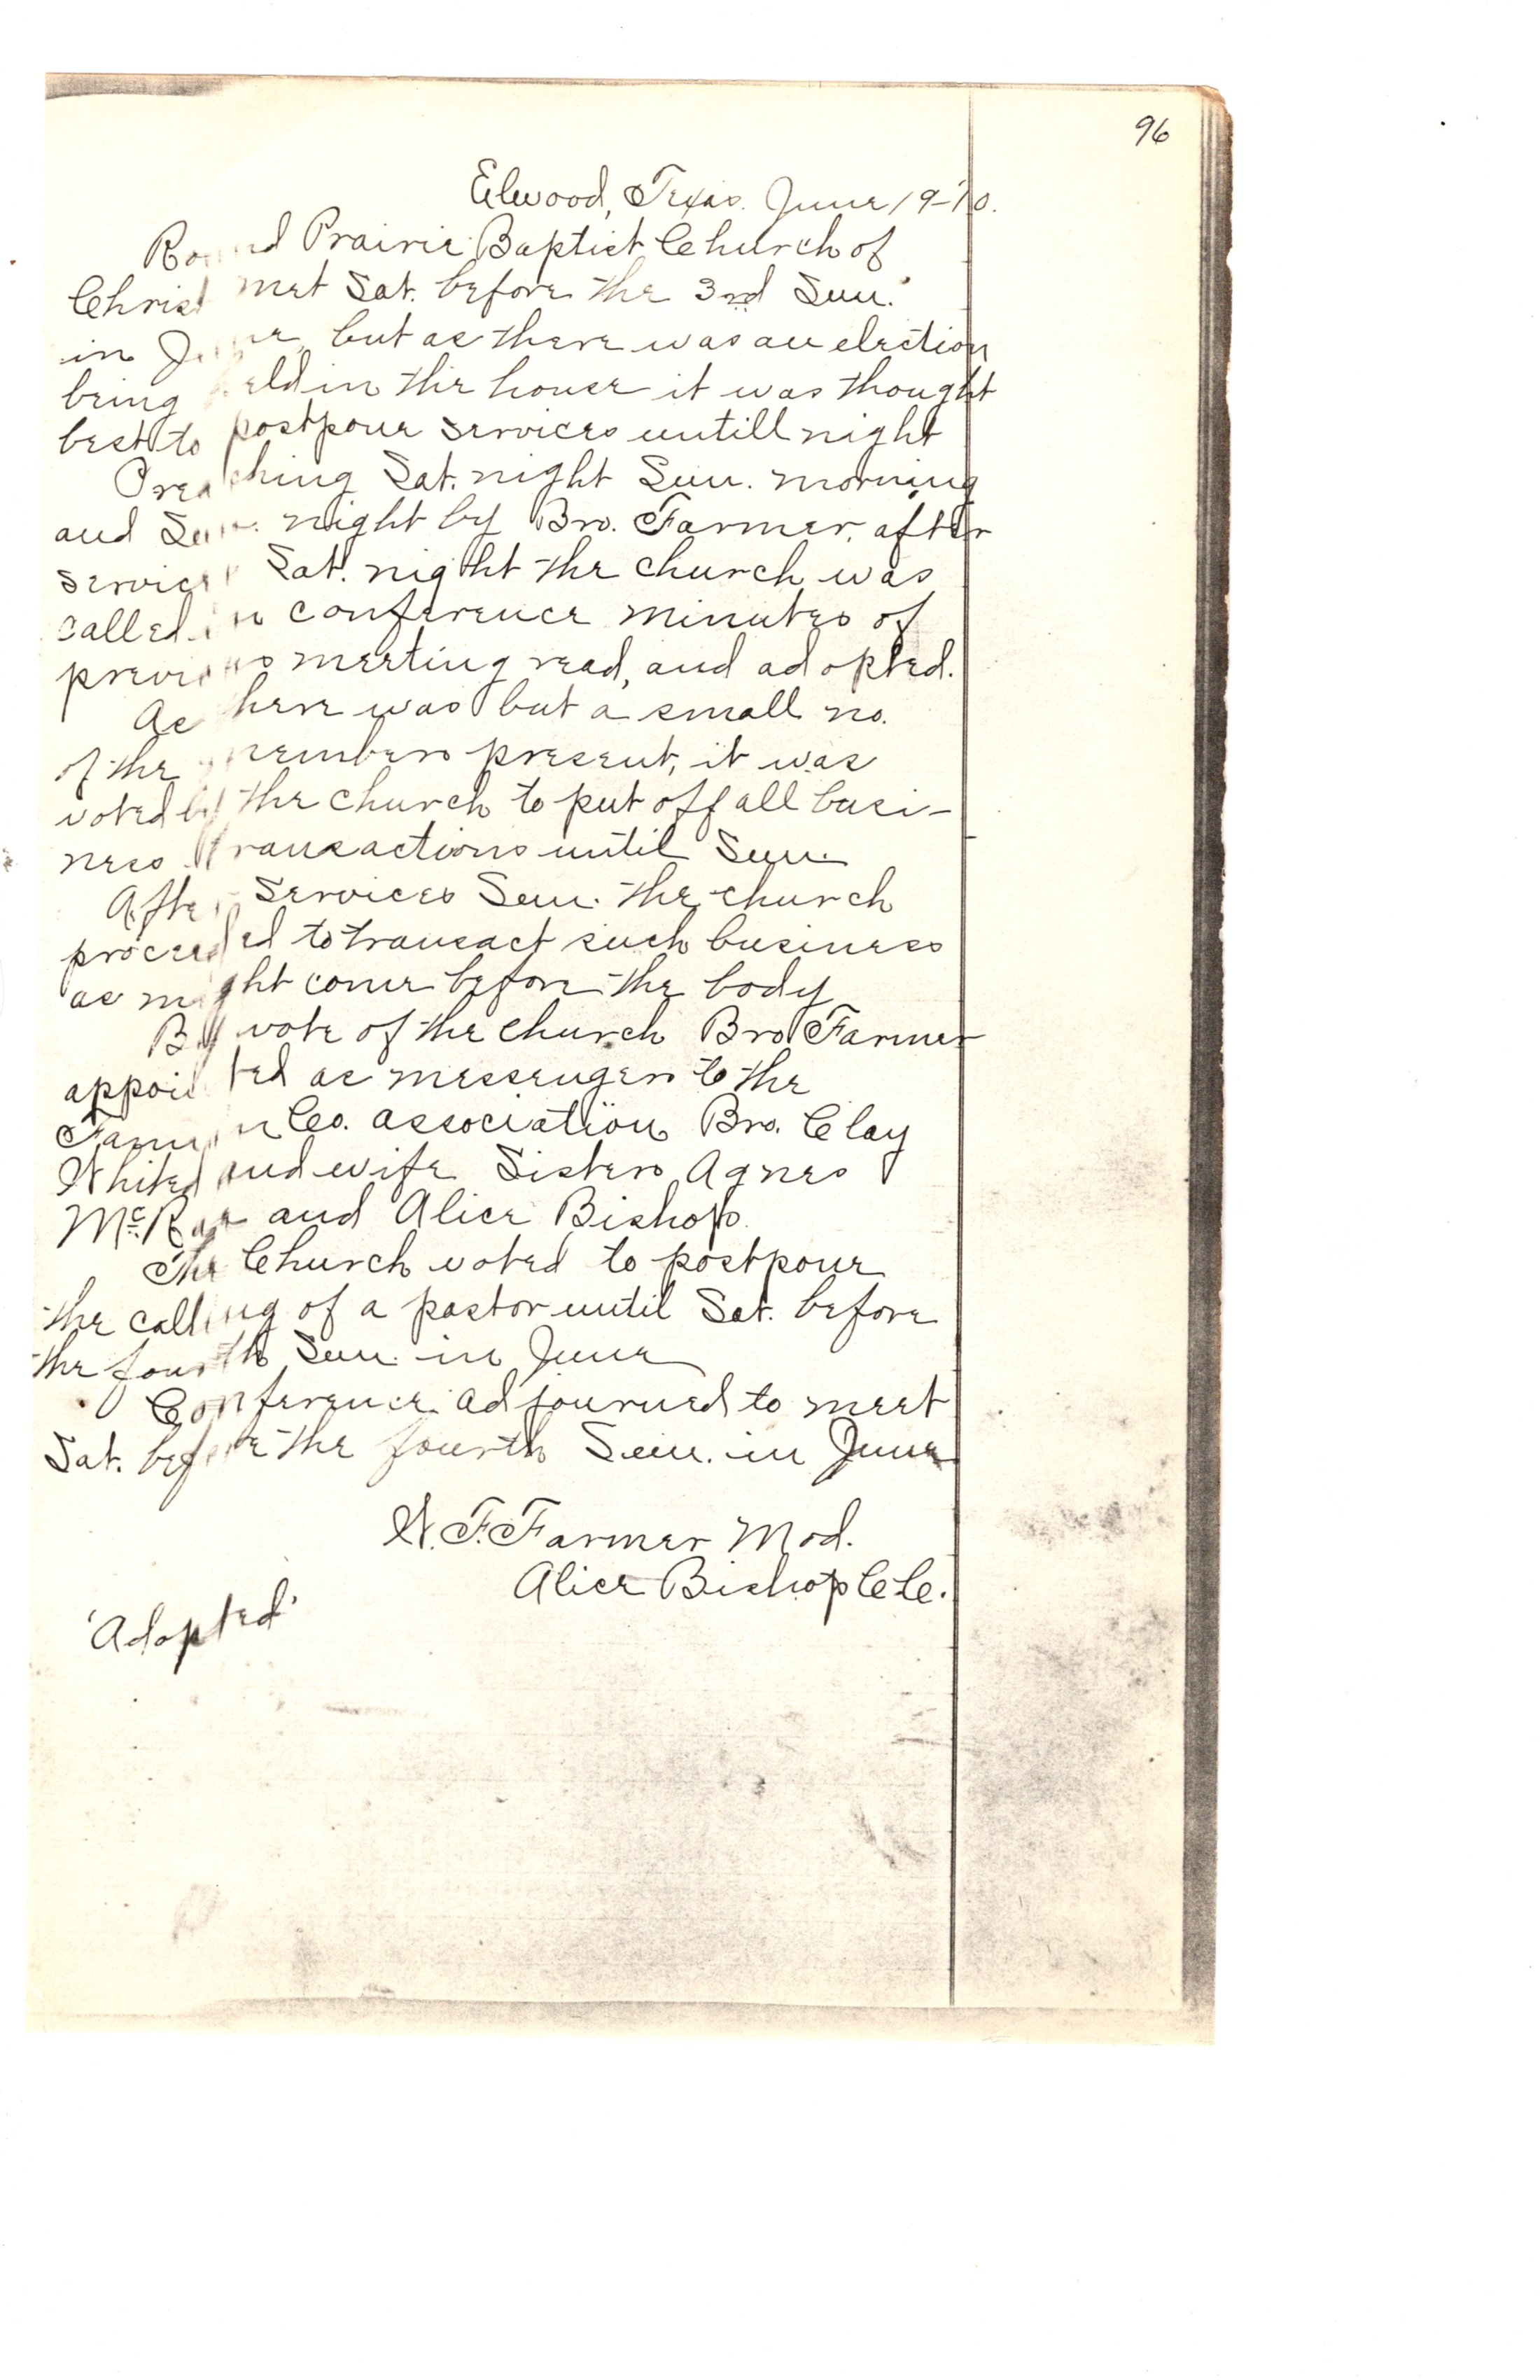 96
Elwood, Texas. June 19-'10.
Round Prairie Baptist Church of
Christ met Sat. before the 3rd Sun.
in June, but as there was an election
being held in the house it was thought
best to postpone services untill night
Preaching Sat. night Sun. morning
and Sun. night by Bro. Farmer, after
services Sat. night the church was
called in conference minutes of
previous meeting read, and adopted.
As there was but a small no.
of the members present, it was
voted by the church to put off all busi-
ness transactions until Sun.
After services Sun. the church
proceeded to transact such business
as might come before the body
By vote of the church Bro Farmer
appointed as messengers to the
Fannin Co. association Bro. Clay
Whited and wife Sisters Agnes
McRae and Alice Bishop.
The Church voted to postpone
the calling of a pastor until Sat. before
the fourth Sun. in June
Conference adjourned to meet
Sat. before the fourth Sun. in June
W. F. Farmer Mod.
Alice Bishop C.C.
'Adopted'